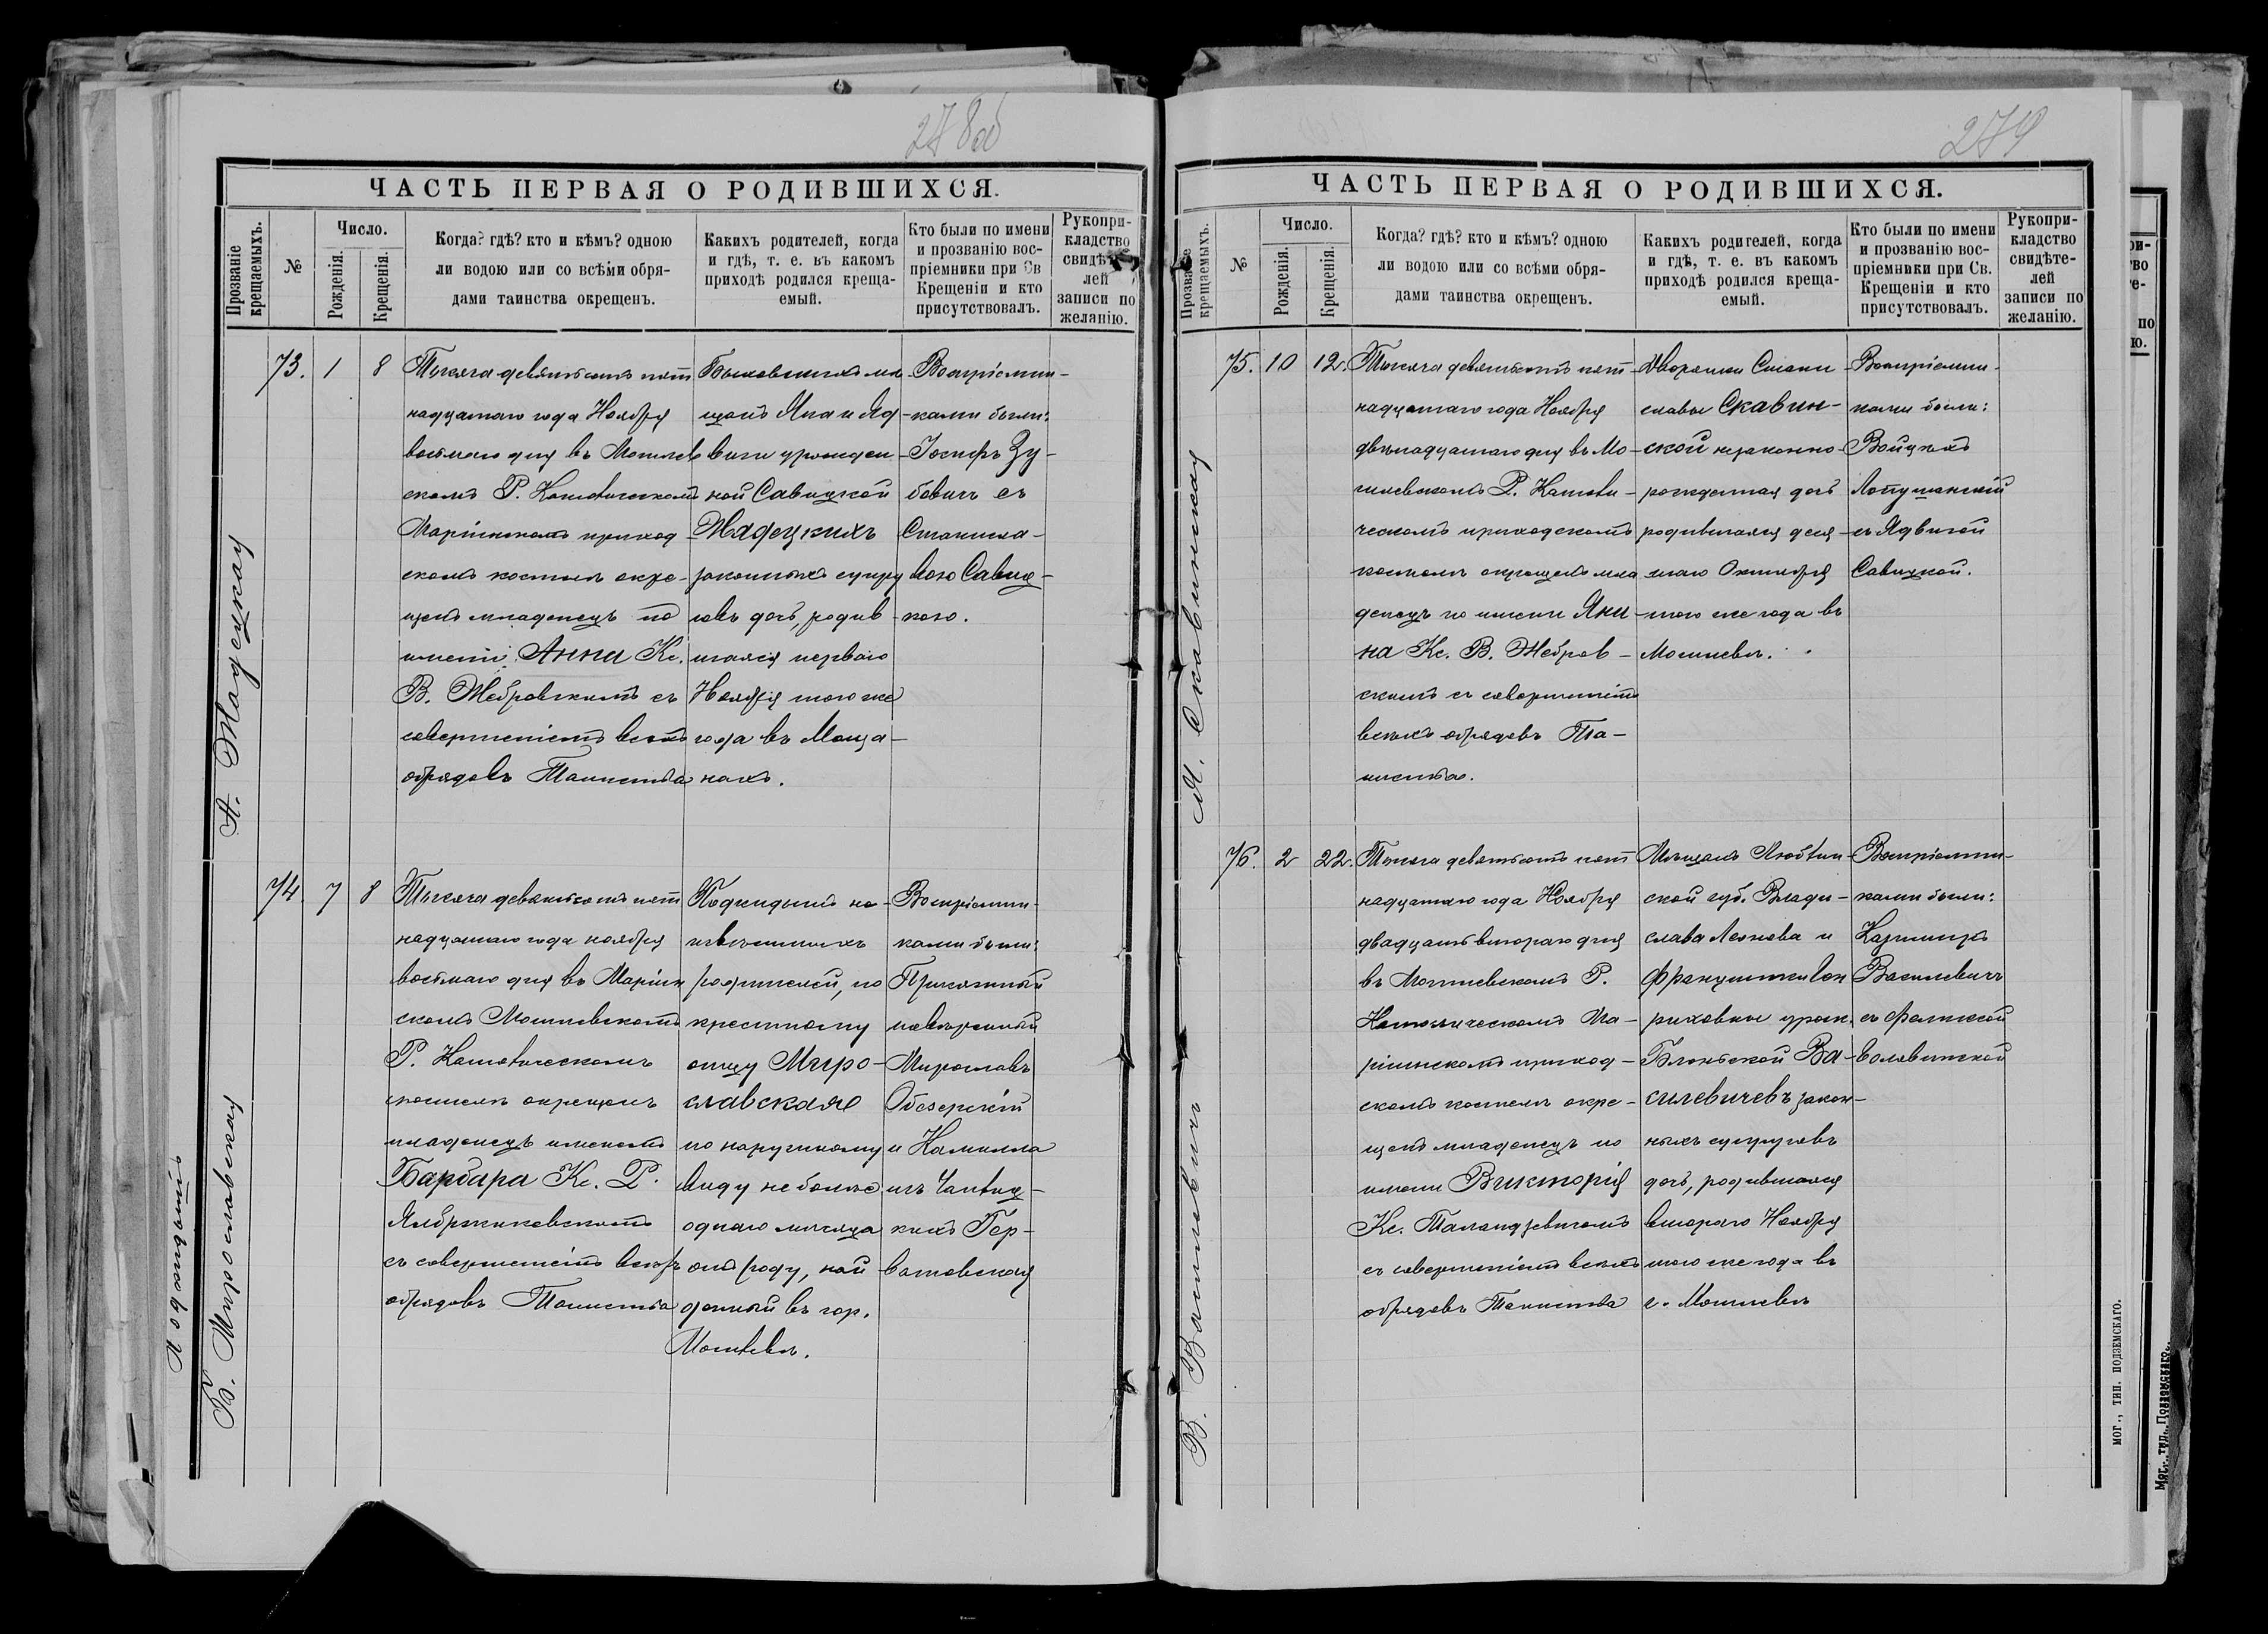 278об
ЧАСТЬ ПЕРВАЯ О РОДИВШИХСЯ.
Прозваніе крещаемыхъ.
№
Число.
Рожденія.
Крещенія.
Когда? гдѣ? кто и кѣмъ? одною
ли водою или со всѣми обря-
дами таинства окрещенъ.
Какихъ родителей, когда
и гдѣ, т. е. въ какомъ
приходѣ родился креща-
емый.
Кто были по имени
и прозванію вос-
пріемники при Св
Крещеніи и кто
присутствовалъ.
Рукопри-
кладство
свидѣте-
лей
записи по
желанію.
А. Жадецкая
73.
1
8
Тысяча девятьсотъ пят
надцатаго года Ноября
восьмаго дня въ Могилев
скомъ Р. Католическомъ
Маріинскомъ приход-
скомъ костелѣ окре-
щенъ младенецъ по
имени Анна Кс.
В. Жебровскимъ съ
совершеніемъ всѣхъ
обрядовъ Таинства
Быховскихъ мѣ
щанъ Яна и Яд-
виги урожден-
ной Савицкой
Жадецкихъ
законныхъ супру
говъ дочь, родив
шаяся перваго
Ноября того же
года въ
Воспріемни-
ками были:
Іосифъ Зу-
бовичъ съ
Станисла-
вою Савиц-
кою.
Подкидышъ
Б. Мирославская
74.
7
8
Тысяча девятьсотъ пят
надцатаго года ноября
восьмаго дня въ Маріин
скомъ Могилевскомъ
Р. Католическомъ
костелѣ окрещенъ
младенецъ именемъ
Барбара Кс. Р.
съ совершеніемъ всѣхъ
обрядовъ Таинства
Подкидышъ не-
извѣстныхъ
родителей, по
крестному
отцу Миро-
славская
по наружному
виду не болѣе
однаго мѣсяца
отъ роду, най
денный въ гор.
Могилевѣ.
Воспріемни-
ками были:
Присяжный
повѣренный
Мирославъ
Обезерскій
и Камилла
279
ЧАСТЬ ПЕРВАЯ О РОДИВШИХСЯ.
Прозваніе крещаемыхъ.
№
Число.
Рожденія.
Крещенія.
Когда? гдѣ? кто и кѣмъ? одною
ли водою или со всѣми обря-
дами таинства окрещенъ.
Какихъ родителей, когда
и гдѣ, т. е. въ какомъ
приходѣ родился креща-
емый.
Кто были по имени
и прозванію вос-
пріемники при Св.
Крещеніи и кто
присутствовалъ.
Рукопри-
кладство
свидѣте-
лей
записи по
желанію.
Скавинская
75.
10
12.
Тысяча девятьсотъ пят
надцатаго года Ноября
двѣнадцатаго дня въ Мо-
гилевскомъ Р. Католи-
ческомъ приходскомъ
костелѣ окрещенъ мла
денецъ по имени Яни-
на Кс. В. Жебров-
скимъ съ совершеніемъ
всѣхъ обрядовъ Та-
инства.
Дворянки Стани
славы Скавин-
ской незаконно-
рожденная дочь
родившаяся деся-
таго Октября
того же года въ
Могилевѣ.
Воспріемни-
ками были:
Войцехъ
Лопушанскій
съ Ядвигой
Савицкой.
В. Василевичъ
76.
2
22.
Тысяча девятьсотъ пят
надцатаго года Ноября
двадцать втораго дня
въ Могилевскомъ Р.
Католическомъ Ма-
ріинскомъ приход-
скомъ костелѣ окре-
щенъ младенецъ по
имени Викторія
съ совершеніемъ всѣхъ
обрядовъ Таинства
Мѣщанъ Люблин-
ской губ. Влади-
слава Леонова и
Францишки Ген
риховны урож.
Блонской Ва-
силевичевъ закон-
ныхъ супруговъ
дочь, родившаяся
втораго Ноября
того же года въ
г. Могилевѣ
Воспріемни-
ками были:
Казиміръ
Василевичъ
съ
МОГ., ТИП. ПОДЗЕМСКАГО.
Мог., тип. Подземскаго.